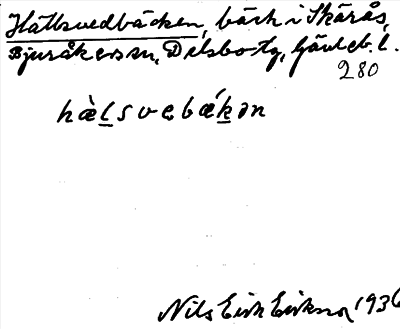 Hattsvedbäcken, bäck i Skärås,
Bjuråkers sn, Delsbo tg, Gävleb. l.
280
hæ̀lsvebǽkən
Nils Erik Eriksson 1936